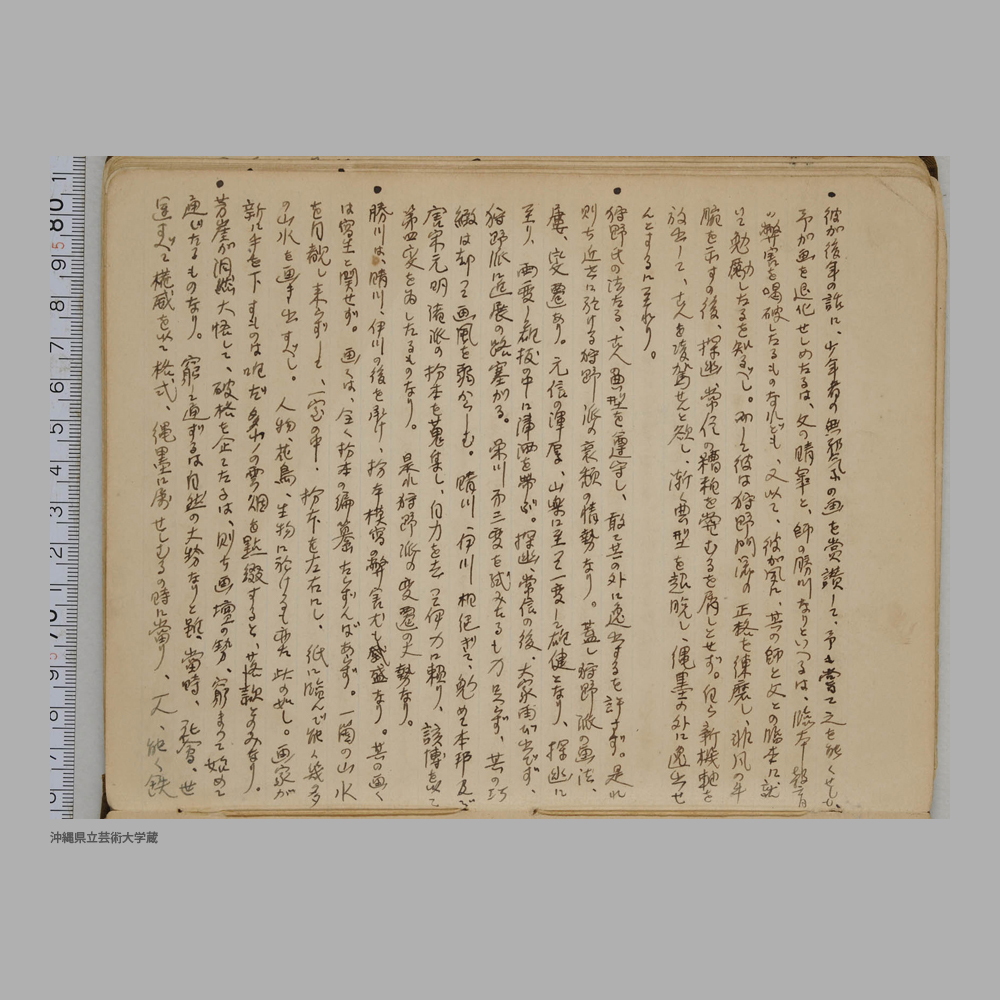 彼が後年の話に、少年者の無邪気の画を賞讃して、予も嘗て之を能くせしも、
予が画を退化せしめたるは、父の晴皐と、師の勝川なりといへるは、臨本教育
の弊害を喝破したるものなれども、又以て、彼が夙に、其の師と父との臨本に就
いて勉励したるを知るべし。而して彼は狩野門流の正格を練磨し、非凡の手
腕を示すの後、探幽、常信の糟粕を嘗むるを屑しとせず。自ら新機軸を
放出して、古人を凌駕せんと欲し、漸く典型を超脱し、縄墨の外に逸出せ
んとするに至れり。
狩野氏の法たる、古人の典型を遵守し、敢て其の外に逸出するを許さず。是れ
則ち近世に於ける狩野派の衰頽の情勢なり。蓋し狩野派の画法、
屡、変遷あり。元信の渾厚、山楽に至て一変して雄健となり、探幽に
至り、再変し
狩野派に進展の路塞がる。栄川第三変を試みたるも力足らず、其の巧
緻は却って画風を弱からしむ。晴川、伊川相継ぎて、勉めて本邦及び
宋元明清派の粉本を蒐集し、自力を去って伊力に頼り、該博を以て
第四変を為したるものなり。是れ狩野派の変遷の大勢なり。
勝川は、晴川、伊川の後を承け、粉本模写の弊害尤も盛なり。其の画く
は写生と関せず。画くは、全く粉本の編纂たらずんばあらず。一箇の山水
を目観し来らずして、一室の中、粉本を左右にし、紙に臨んで能く幾多
の山水を画き出すべし。人物、花鳥、生物に於けるも亦た此の如し。画家が
新に手を下すものは唯だ多少の雲烟を點綴すると、落款とのみなり。
芳崖が洞然大悟して、破格を企てたるは、則ち画壇の勢、窮まつて始めて
通じたるものなり。窮て通ずるは自然の大勢なりと雖、当時、世
運すべて権威を以て格式、縄墨に局せしむるの時に当り、一人、能く鉄
沖縄県立芸術大学蔵